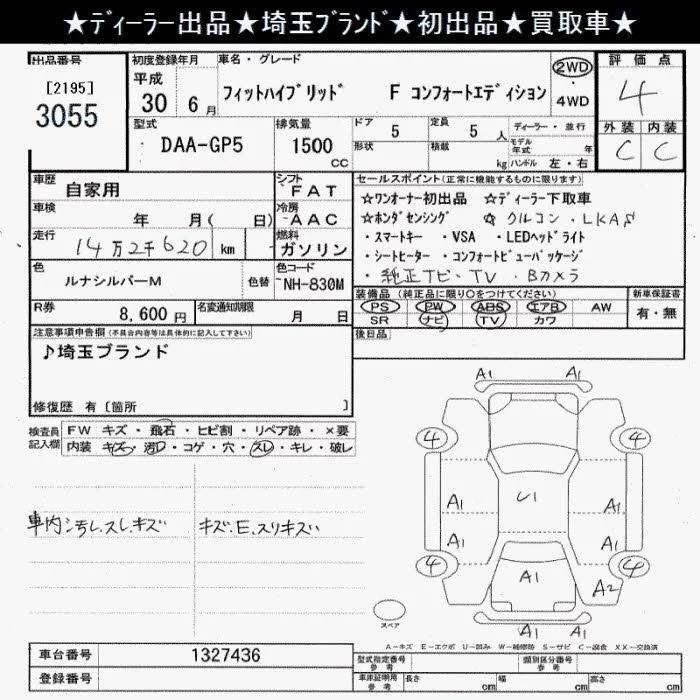 ★ディーラー出品★埼玉ブランド★初出品★買取車★
出品番号 初度登録年月 車名・グレード 評価点
[2195] 平成 2WD
3055 30 6月 フィットハイブリッド F コンフォートエディション ・ 4
4WD
型式 排気量 ドア 5 定員 5人 ディーラー・並行 外装 内装
DAA-GP5 1500 CC 形状 積載 kg モデル年式 年 C C
ハンドル 左・右
車歴 自家用 シフト FAT セールスポイント(正常に機能するものに限ります)
車検 年 月( 日) 冷房 AAC ☆ワンオーナー初出品 ☆ディーラー下取車
☆ホンダセンシング ☆クルコン・LKAS
走行 14万2千620 km 燃料 ガソリン ・スマートキー ・VSA ・LEDヘッドライト
・シートヒーター ・コンフォートビューパッケージ
色 ルナシルバーM 色替 色コード NH-830M ・純正ナビ・TV ・Bカメラ
装備品 (純正品に限り○をつけてください) 新車保証書
R券 8,600円 名変通知期限 月 日 PS PW ABS エアB AW 有・無
SR ナビ TV カワ
注意事項申告欄(不具合内容等は具体的に記入して下さい) 後日品
♪埼玉ブランド
修復歴 有 [箇所 ]
検査員 FW キズ・飛石・ヒビ割・リペア跡・×要
記入欄 内装 キズ・汚レ・コゲ・穴・スレ・キレ・破レ
車内汚レ.スレ.キズ キズ.E.スリキズ
A1 A1
4 4
A1 U1 A1
A1 A1
4 A1 A2 4
A1 A1
スペア
A-キズ E-エクボ U-凹み W-補修跡 S-サビ C-腐食 XX-交換済
車台番号 1327436
登録番号
型式指定番号 参考 類別区分番号 参考
車庫証明用 参考 長さ cm 幅 cm 高さ cm